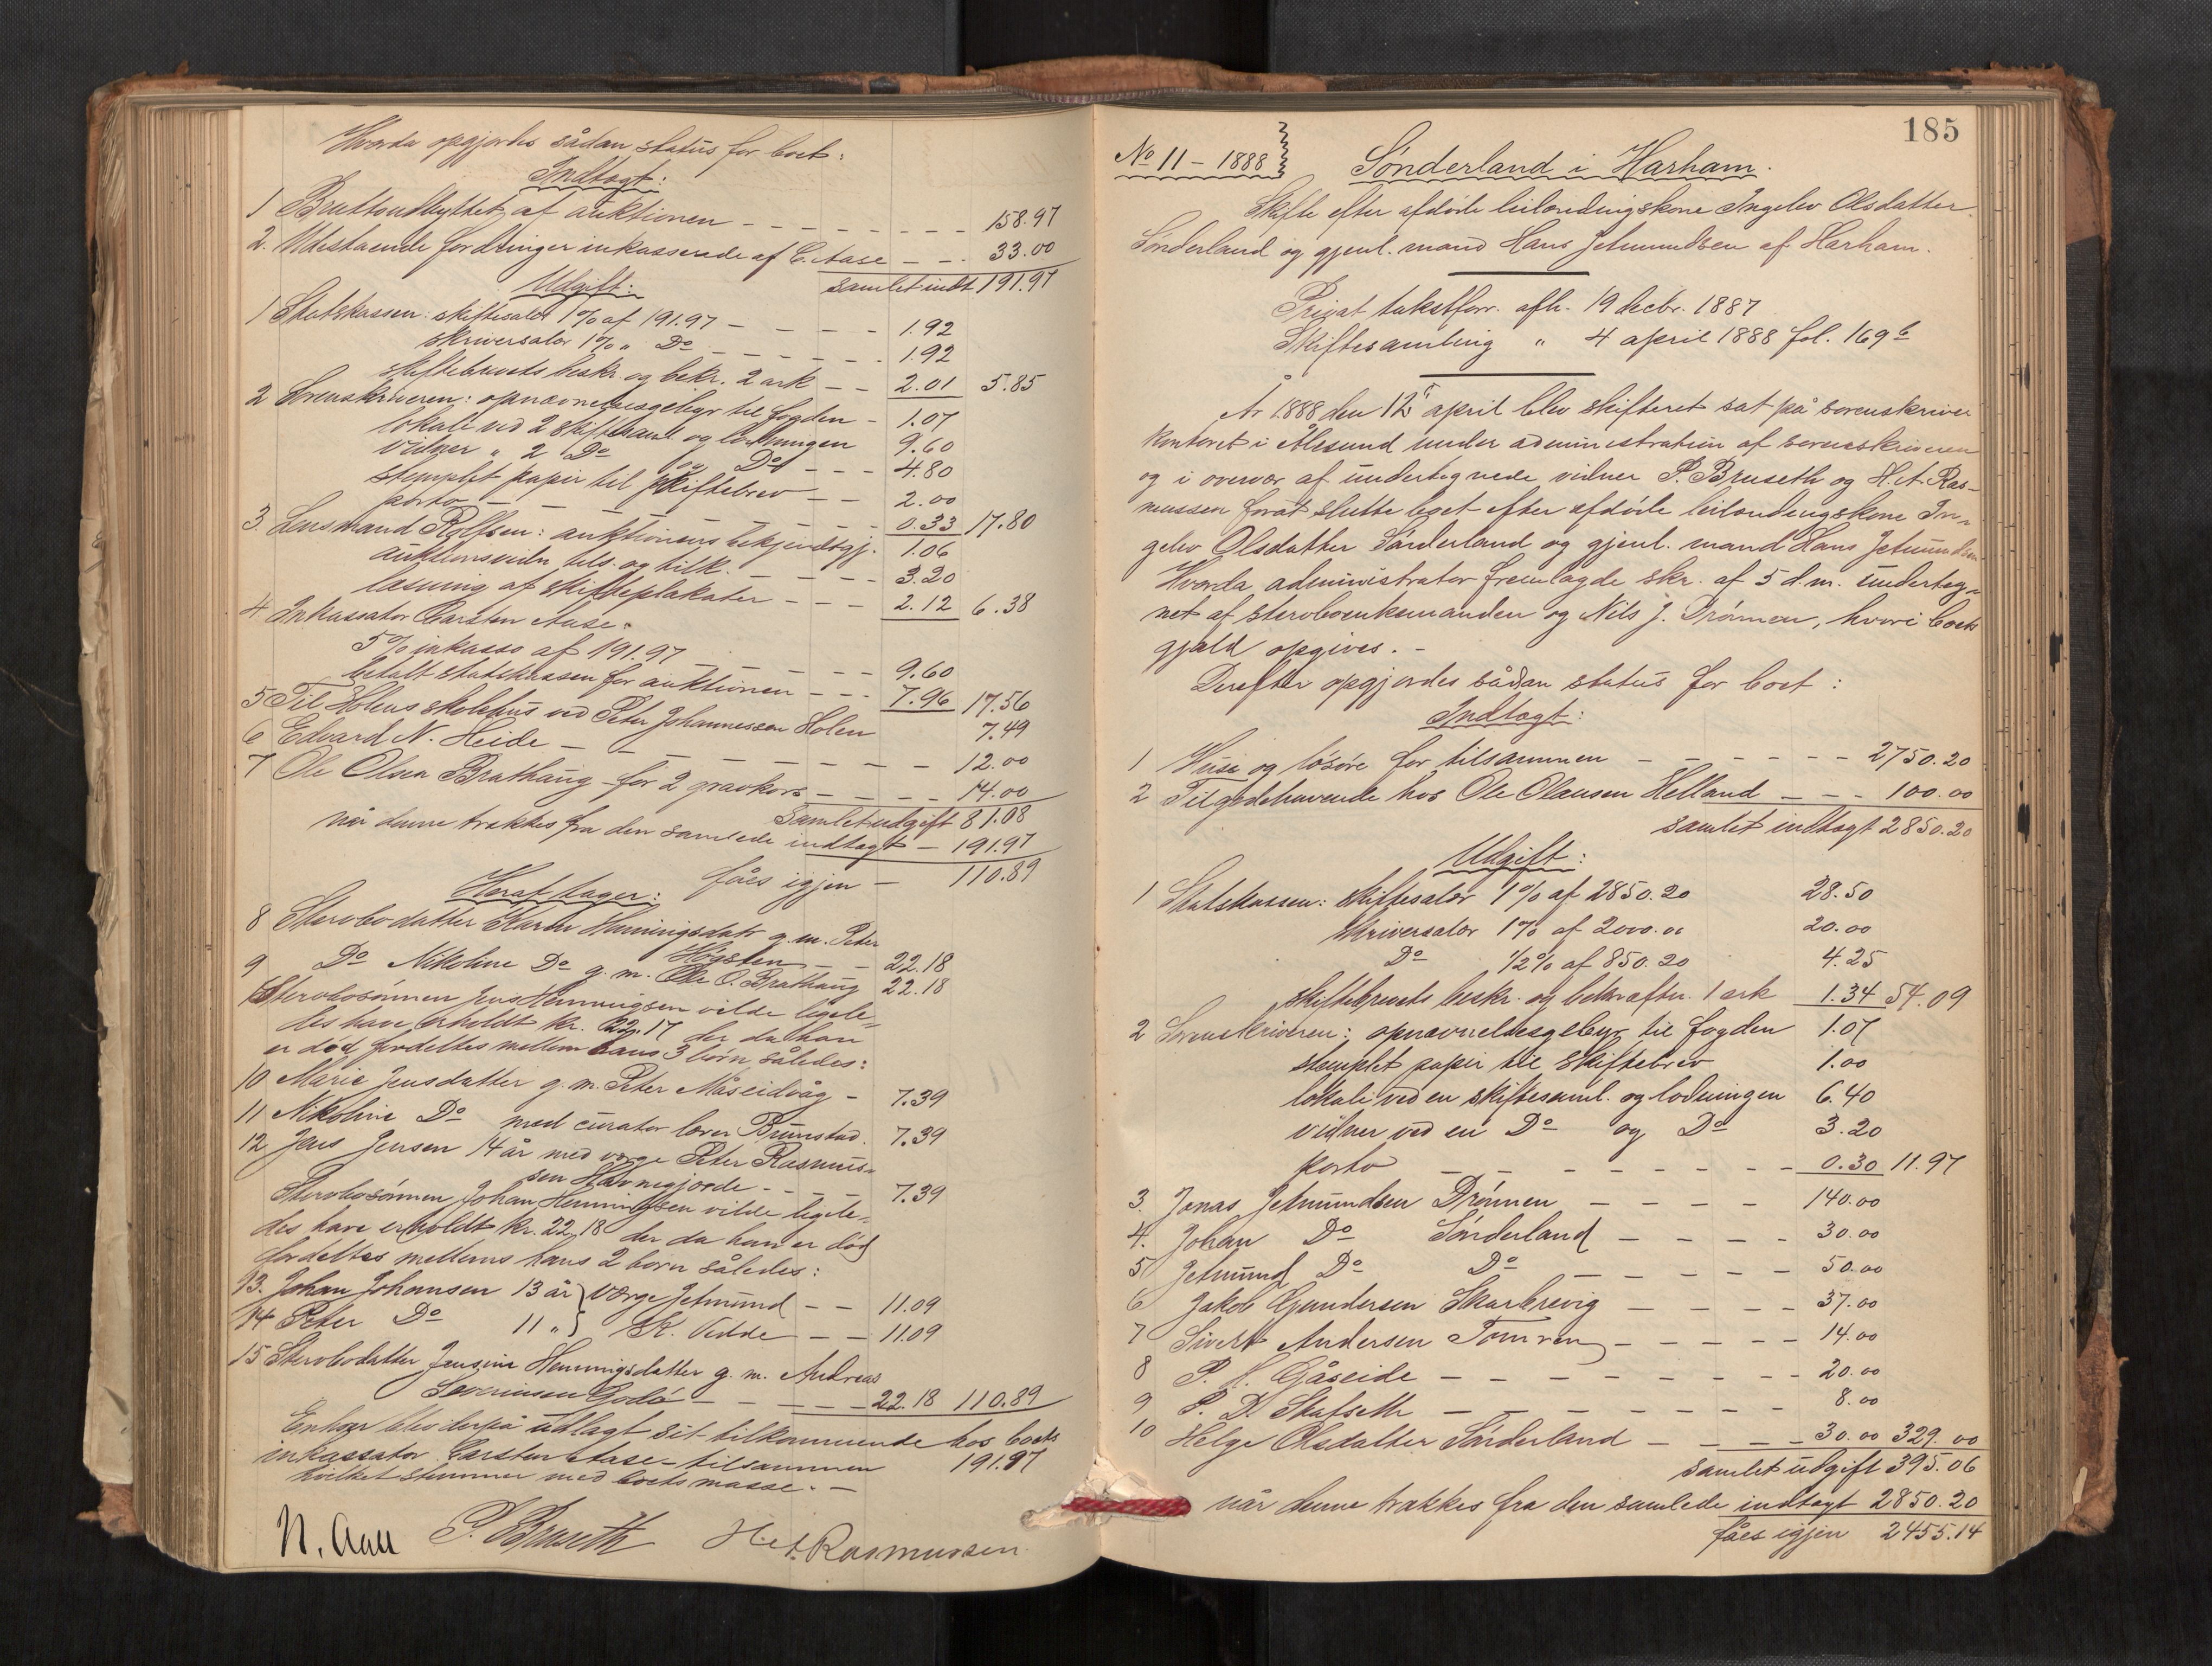 Hvorda opgjordes sådan status for boet:
Indtægt:
1 Bruttoudbyttet af auktionen — 158.97
2. Udestaaende fordringer inkasserede af C. Aase — 33.00
samlet indt 191.97
Udgift:
1 Statskassen: skiftesalær 1% af 191.97 — 1.92
skriversalær 1% " Do — 1.92
skiftebrevets beskr. og bekr. 2 ark — 2.01 5.85
2 Sorenskriveren: opnævnelsesgebyr til fogden — 1.07
lokale ved 2 skiftesaml. og lodningen 9.60
vidner " 2 Do og Do — 4.80
stemplet papir til skiftebrev — 2.00
porto — 0.33 17.80
3. Lensmand Rolfsen: auktionens bekjendtgj. 1.06
auktionsvidn. tils. og tilk. — 3.20
læsning af skifteplakater — 2.12 6.38
4 Inkassator Carsten Aase:
5% inkasso af 191.97 — 9.60
betalt statskassen for auktionen — 7.96 17.56
5 Til Holens skolehus ved Peter Johannessen Holen 7.49
6 Edvard N. Heide — 12.00
7 Ole Olsen Brathaug for 2 gravkors — 14.00
Samlet udgift 81.08
når denne trækkes fra den samlede indtægt — 191.97
fåes igjen — 110.89
Heraf tager:
8 Stervbodatter Karen Henningsdatr g. m. Peter
Högsten — 22.18
9 Do Nikoline Do g. m. Ole O. Brathaug 22.18
Stervbosönnen Jens Henningsen vilde ligele-
des have erholdt kr. 22.17 der da han
er död fordeltes mellem hans 3 börn således:
10 Marie Jensdatter g. m. Peter Måseidvåg — 7.39
11 Nikoline Do med curator lærer Brunstad. 7.39
12 Jens Jensen 14 år med værge Peter Rasmus-
sen Havnegjærde — 7.39
Stervbosönnen Johan Henningsen vilde ligele-
des have erholdt kr. 22.18 der da han er död
fordeltes mellem hans 2 börn således:
13. Johan Johansen 13 år } Værge Jetmund — 11.09
14 Peter Do 11 " } K. Vedde — 11.09
15 Stervbodatter Jensine Henningsdatter g. m. Andreas
Severinsen Godö — 22.18 110.89
Enhver blev derpå udlagt sit tilkommende hos boets
inkassator Carsten Aase — tilsammen 191.97
hvilket stemmer med boets masse. —
N. Aall P. Bruseth H. A. Rasmussen
185
No 11 — 1888 } Sönderland i Harham.
Skifte efter afdöde leilændingskone Ingelev Olsdatter
Sönderland og gjenl. mand Hans Jetmundsen af Harham.
Privat takstforr. afh. 19 decbr. 1887
Skiftesamling " 4 april 1888 fol. 169 b
År 1888 den 12 april blev skifteret sat på sorenskriver
kontoret i Ålesund under administration af sorenskriveren
og i overvær af undertegnede vidner P. Bruseth og H. A. Ras-
mussen forat slutte boet efter afdöde leilændingskone In-
gelev Olsdatter Sönderland og gjenl. mand Hans Jetmundsen
Hvorda administrator fremlagde skr. af 5 d.m. underteg-
net af stervboenkemanden og Nils J. Drönnen, hvori boets
gjæld opgives. —
Derefter opgjordes sådan status for boet:
Indtægt:
1 Huse og lösöre for tilsammen — 2750.20
2 Tilgodehavende hos Ole Olausen Helland — 100.00
samlet indtægt 2850.20
Udgift:
1 Statskassen: skiftesalær 1% af 2850.20 28.50
skriversalær 1% af 2000.00 20.00
Do 1/2% af 850.20 4.25
skiftebrevets beskr. og bekræftn. 1 ark 1.34 54.09
2 Sorenskriveren: opnævnelsesgebyr til fogden 1.07
stemplet papir til skiftebrev 1.00
lokale ved en skiftesaml. og lodningen 6.40
vidner ved en Do og Do 3.20
porto — 0.30 11.97
3. Jonas Jetmundsen Drönnen — 140.00
4. Johan Do Sönderland — 30.00
5 Jetmund Do Do — 50.00
6 Jakob Gundersen Skarbrevig — 37.00
7 Sivert Andersen Tomren — 14.00
8 P. H. Gåseide — 20.00
9 P. D. Stafseth — 8.00
10 Helge Olsdatter Sönderland — 30.00 329.00
samlet udgift 395.06
når denne trækkes fra den samlede indtægt 2850.20
fåes igjen 2455.14